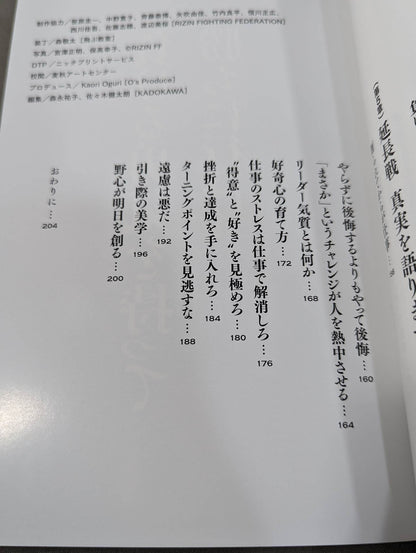 制作協力／笹原圭一、水野寛子、齊藤春博、矢吹由佳、竹内良平、信川正広、
西川佳吾、佐藤志穂、渡辺美桜［RIZIN FIGHTING FEDERATION］
装丁／森敬太［飛ぶ教室］
写真／吉澤正明、保高幸子、©RIZIN FF
DTP／ニッタプリントサービス
校閲／麦秋アートセンター
プロデュース／Kaori Oguri［O's Produce］
編集／森永祐子、佐々木健太朗［KADOKAWA］
延長戦 真実を語り
やらずに後悔するよりもやって後悔… 160
「まさか」というチャレンジが人を熱中させる… 164
リーダー気質とは何か… 168
好奇心の育て方… 172
仕事のストレスは仕事で解消しろ… 176
“得意”と“好き”を見極めろ… 180
挫折と達成を手に入れろ… 184
ターニングポイントを見逃すな… 188
遠慮は悪だ… 192
引き際の美学… 196
野心が明日を創る… 200
おわりに… 204